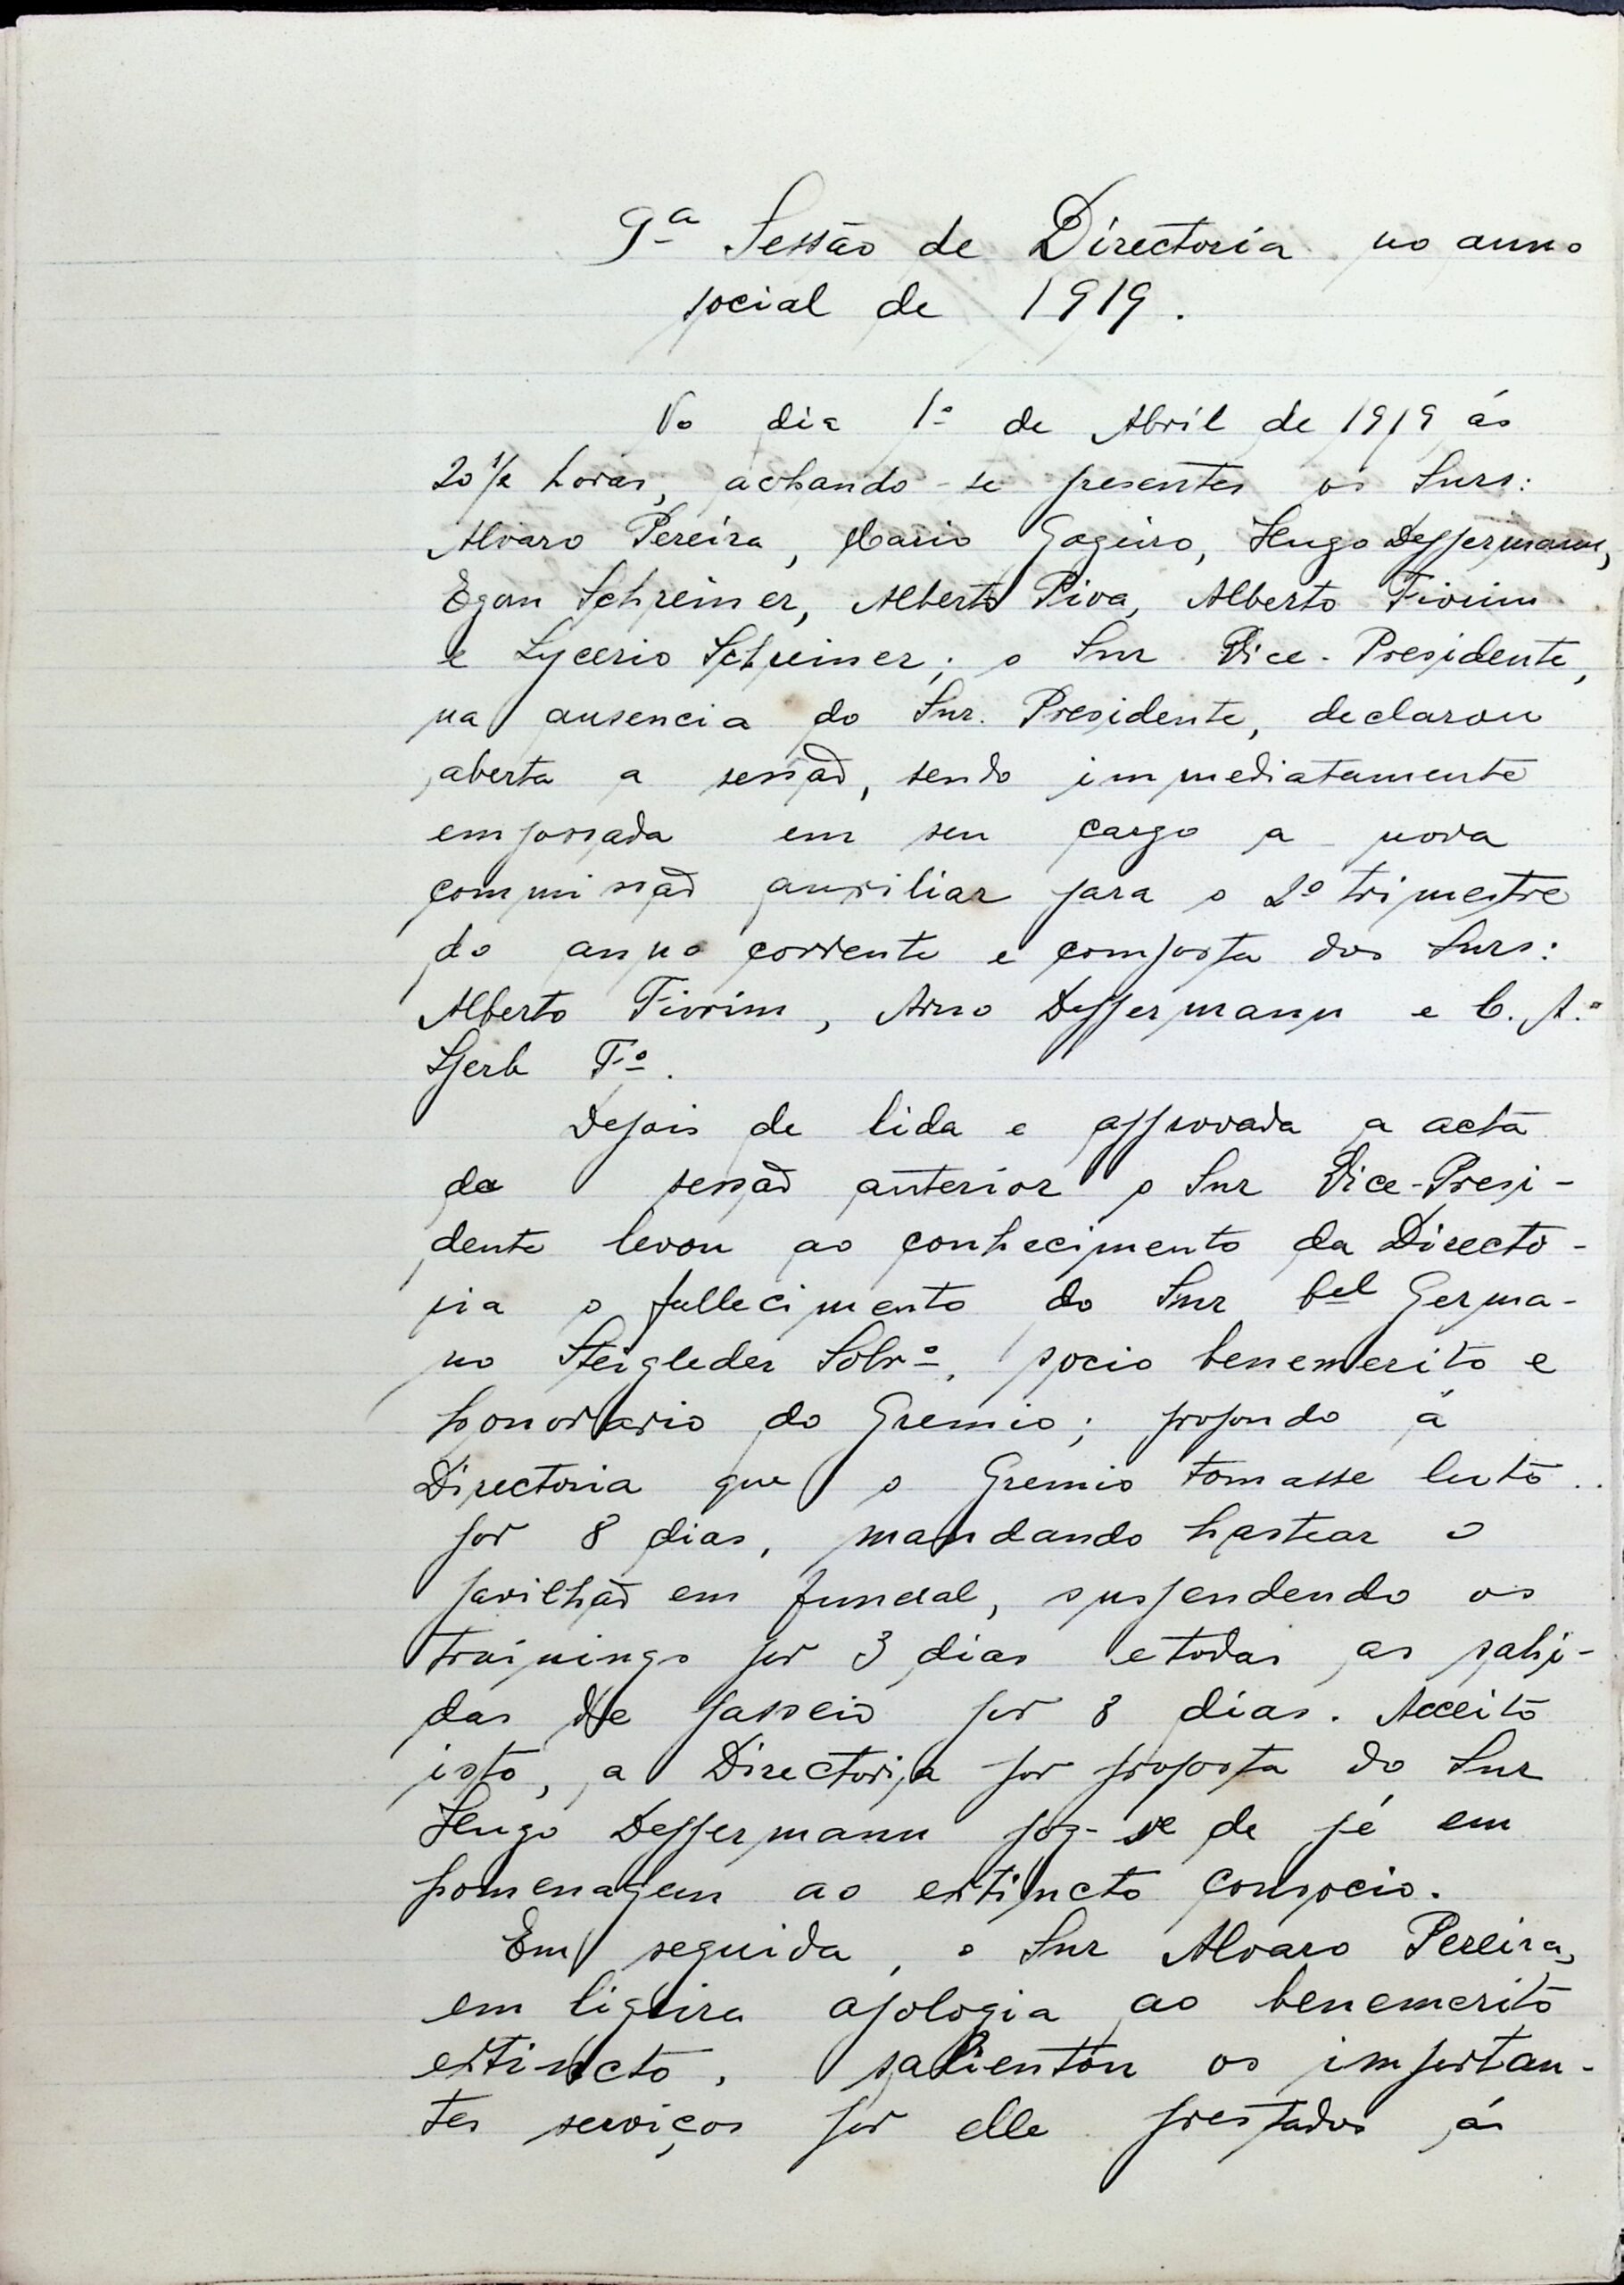 9ª Sessão de Directoria no anno
social de 1919.
No dia 1º de Abril de 1919 ás
20 1/2 horas, achando-se presentes os Snrs:
Alvaro Pereira, Mario Gogeiro, Hugo Deppermann,
Egon Schreiner, Alberto Piva, Alberto Fiorim
e Lycerio Schreiner; o Snr Vice-Presidente,
na ausencia do Snr. Presidente, declarou
aberta a sessão, sendo immediatamente
empossada em seu cargo a nova
commissão auxiliar para o 2º trimestre
do anno corrente e composta dos Snrs:
Alberto Fiorim, Arno Deppermann e C. A.º
Sperb Fº.
Depois de lida e approvada a acta
da sessão anterior o Snr Vice-Presi-
dente levou ao conhecimento da Directo-
ria o fallecimento do Snr Cel Germa-
no Steigleder Sobrº, socio benemerito e
honorario do Gremio; propondo á
Directoria que o Gremio tomasse luto
por 8 dias, mandando hastear o
pavilhão em funeral, suspendendo os
trainings por 3 dias e todas as sahi-
das de passeio por 8 dias. Acceito
isto, a Directoria por proposta do Snr
Hugo Deppermann poz-se de pé em
homenagem ao extincto consocio.
Em seguida, o Snr Alvaro Pereira,
em ligeira apologia ao benemerito
extincto, salientou os importan-
tes serviços por elle prestados ás